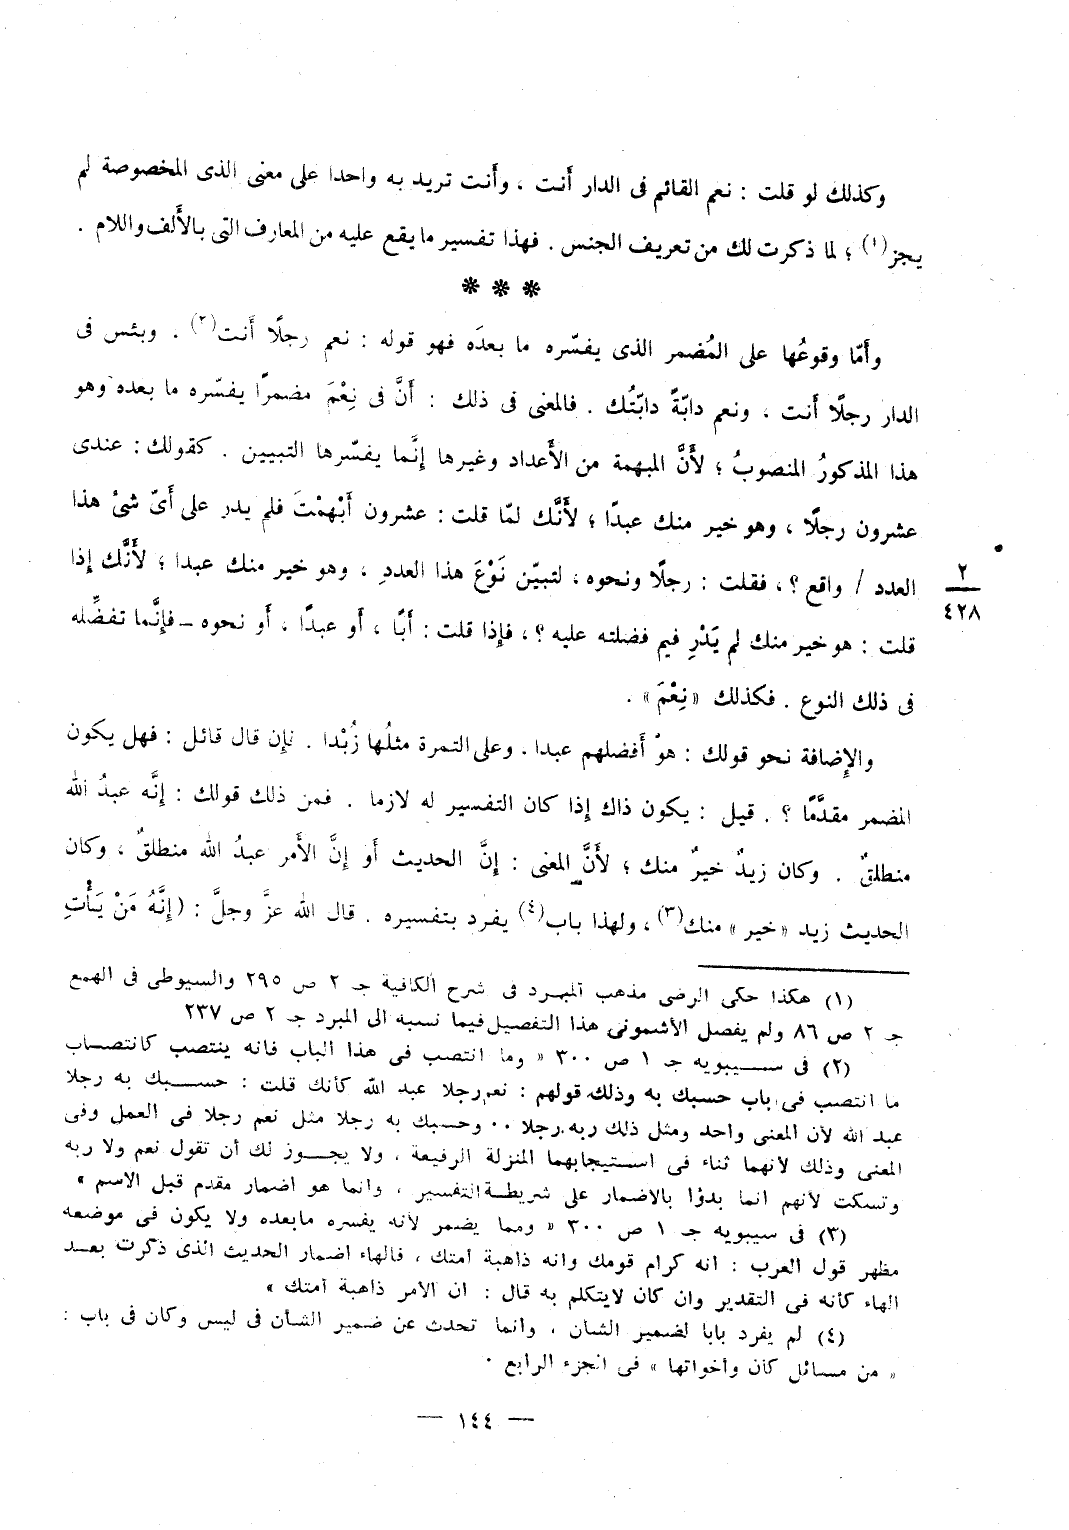 وكذلك لو قلت : نعم القائم فى الدار أَنت ، وأَنت تريد به واحدا على معنى الذى المخصوصة لم
يجز(١) ؛ لما ذكرت لك من تعريف الجنس . فهذا تفسير ما يقع عليه من المعارف التى بالأَلف واللام .
* * *
وأَمّا وقوعُها على المُضمر الذى يفسّره ما بعدَه فهو قوله : نعم رجلًا أَنت(٢) . وبئس فى
الدار رجلًا أَنت ، ونعم دابّةً دابّتُك . فالمعنى فى ذلك : أَنَّ فى نِعْمَ مضمرًا يفسّره ما بعده وهو
هذا المذكورُ المنصوبُ ؛ لأَنَّ المبهمة من الأَعداد وغيرها إِنَّما يفسّرها التبيين . كقولك : عندى
عشرون رجلًا ، وهو خير منك عبدًا ؛ لأَنَّك لمّا قلت : عشرون أَبْهمْتَ فلم يدر على أَىّ شئْ هذا
العدد / واقع ؟ ، فقلت : رجلًا ونحوه ، لتبيّن نَوْعَ هذا العددِ ، وهو خير منك عبدا ؛ لأَنَّك إِذا
٢
٤٢٨
قلت : هو خير منك لم يَدْرِ فيم فضلته عليه ؟ ، فإِذا قلت : أَبًا ، أَو عبدًا ، أَو نحوه – فإِنَّما تفضِّله
فى ذلك النوع . فكذلك «نِعْمَ» .
والإِضافة نحو قولك : هو أَفضلهم عبدا . وعلى التمرة مثلُها زُبْدا . فإِن قال قائل : فهل يكون
المضمر مقدَّمًا ؟ . قيل : يكون ذاك إِذا كان التفسير له لازما . فمن ذلك قولك : إِنَّه عبدُ الله
منطلقٌ . وكان زيدٌ خيرٌ منك ؛ لأَنَّ المعنى : إِنَّ الحديث أَو إِنَّ الأَمر عبدُ الله منطلقٌ ، وكان
الحديث زيد «خير» منك(٣) ، ولهذا باب(٤) يفرد بتفسيره . قال الله عزَّ وجلَّ : (إِنَّهُ مَنْ يَأْتِ
(١) هكذا حكى الرضى مذهب المبرد فى شرح الكافية جـ ٢ ص ٢٩٥ والسيوطى فى الهمع
جـ ٢ ص ٨٦ ولم يفصل الأشمونى هذا التفصيل فيما نسبه الى المبرد جـ ٢ ص ٢٣٧
(٢) فى سيبويه جـ ١ ص ٣٠٠ « وما انتصب فى هذا الباب فانه ينتصب كانتصاب
ما انتصب فى باب حسبك به وذلك قولهم : نعم رجلا عبد الله كأنك قلت : حسبك به رجلا
عبد الله لأن المعنى واحد ومثل ذلك ربه رجلا ٠٠ وحسبك به رجلا مثل نعم رجلا فى العمل وفى
المعنى وذلك لأنهما ثناء فى استيجابهما المنزلة الرفيعة ، ولا يجوز لك أن تقول نعم ولا ربه
وتسكت لأنهم انما بدؤا بالاضمار على شريطة التفسير ، وانما هو اضمار مقدم قبل الاسم »
(٣) فى سيبويه جـ ١ ص ٣٠٠ « ومما يضمر لأنه يفسره مابعده ولا يكون فى موضعه
مظهر قول العرب : انه كرام قومك وانه ذاهبة أمتك ، فالهاء اضمار الحديث الذى ذكرت بعد
الهاء كأنه فى التقدير وان كان لايتكلم به قال : ان الأمر ذاهبة أمتك »
(٤) لم يفرد بابا لضمير الشان ، وانما تحدث عن ضمير الشأن فى ليس وكان فى باب :
« من مسائل كان وأخواتها » فى الجزء الرابع ٠
— ١٤٤ —